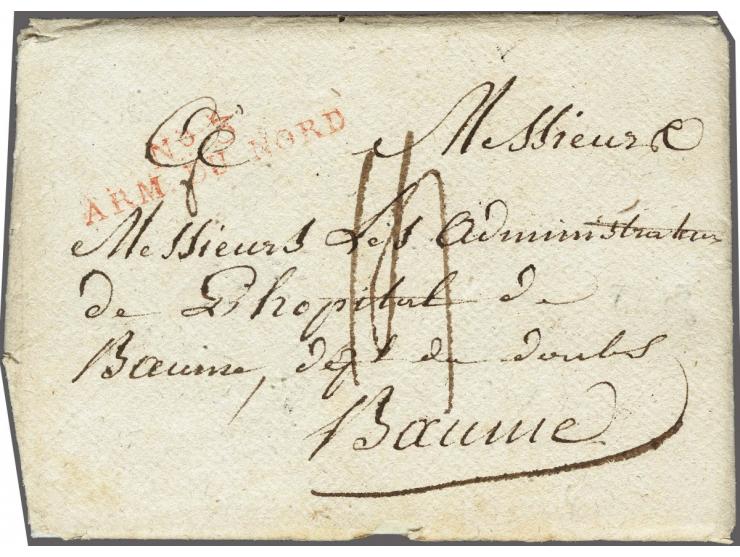 A Messieurs
No 5
ARM DU NORD
Messieurs Les administrateurs
de L'hopital de
Baume, dept du doubs
Baume